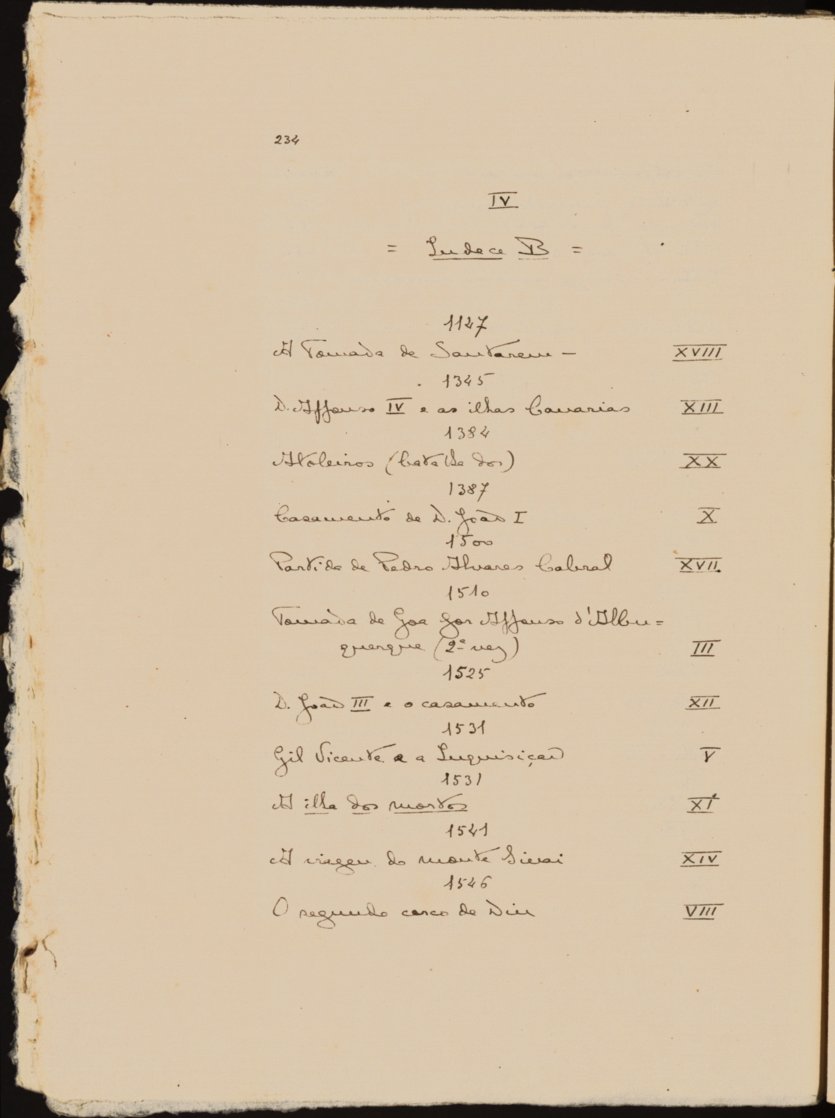 234
IV
= Indece B =
1127
A Tomada de Santarem — XVIII
1345
D. Affonso IV e as ilhas Canarias XIII
1384
Atoleiros (batalha dos) XX
1387
Casamento de D. João I X
1500
Partida de Pedro Alvares Cabral XVII.
1510
Tomada de Goa por Affonso d'Albu=
querque (2ª vez) III
1525
D. João III e o casamento XII
1531
Gil Vicente e a Inquisição V
1531
A ilha dos mortos XI
1541
A viagem do monte Sinai XIV
1546
O segundo cerco de Diu VIII